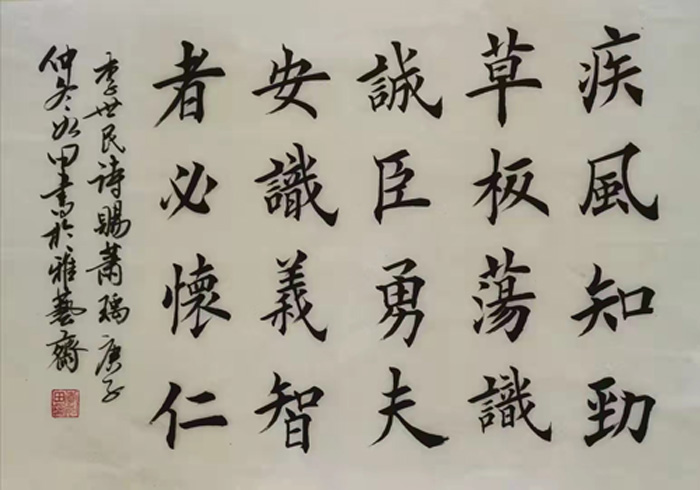 疾風知勁
草板蕩識
誠臣勇夫
安識義智
者必懷仁
李世民詩賜蕭瑀庚子
仲冬如田書於雅藝齋